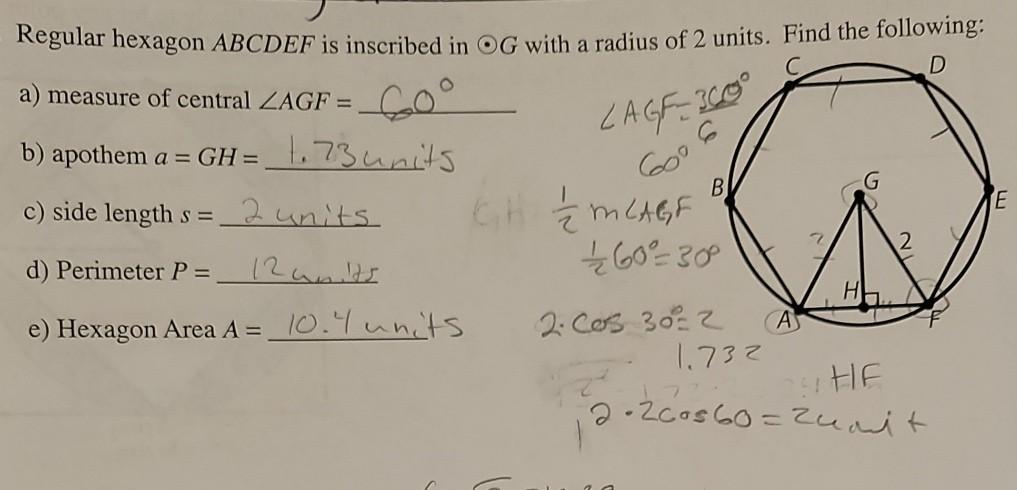 Regular hexagon ABCDEF is inscribed in ⊙G with a radius of 2 units. Find the following:
a) measure of central ∠AGF = 60°
b) apothem a = GH = 1.73 units
c) side length s = 2 units
d) Perimeter P = 12 units
e) Hexagon Area A = 10.4 units
∠AGF = 360°
6
60°
GH 1/2 m∠AGF
1/2 60° = 30°
2·cos 30° = 2
1.732
HF
2·2cos60 = 2unit
C
D
B
G
E
2
2
H
A
F